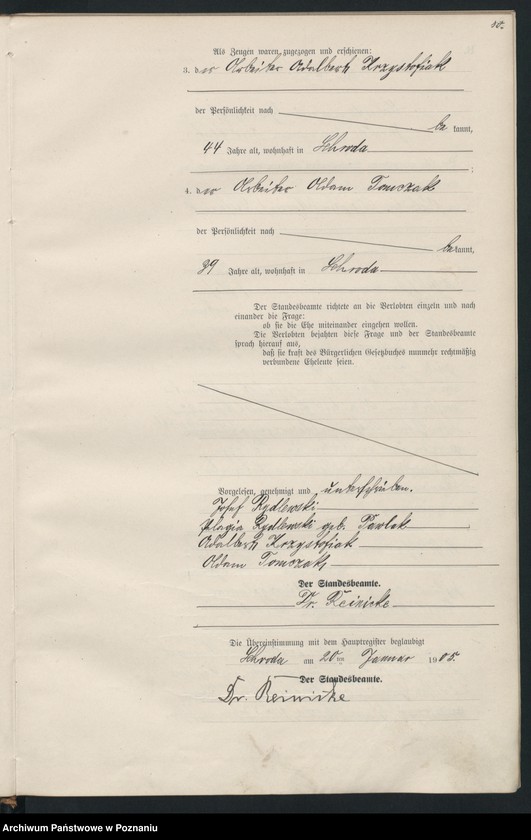 10.
Als Zeugen waren zugezogen und erschienen:
3. der Arbeiter Adalbert Krzystofiak
der Persönlichkeit nach
be kannt,
44 Jahre alt, wohnhaft in Schroda
;
4. der Arbeiter Adam Tomczak
der Persönlichkeit nach
be kannt,
39 Jahre alt, wohnhaft in Schroda
Der Standesbeamte richtete an die Verlobten einzeln und nach
einander die Frage:
ob sie die Ehe miteinander eingehen wollen.
Die Verlobten bejahten diese Frage und der Standesbeamte
sprach hierauf aus,
daß sie kraft des Bürgerlichen Gesetzbuches nunmehr rechtmäßig
verbundene Eheleute seien.
Vorgelesen, genehmigt und unterschrieben.
Josef Rydlewski
Pelagia Rydlewski geb. Pawlak
Adalbert Krzystofiak
Adam Tomczak
Der Standesbeamte.
Dr. Reinicke
Die Übereinstimmung mit dem Hauptregister beglaubigt
Schroda am 20ten Januar 1905.
Der Standesbeamte.
Dr. Reinicke
Archiwum Państwowe w Poznaniu